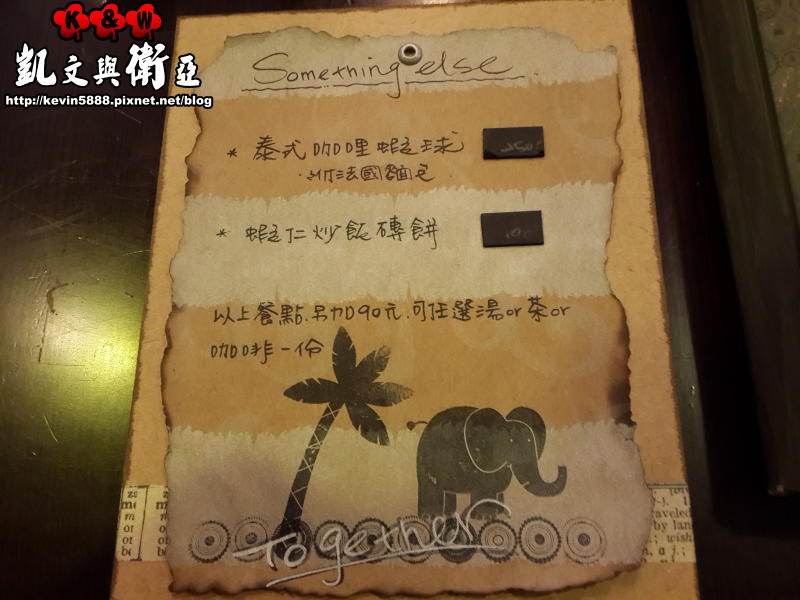 K&W
凱文與衛亞
http://kevin5888.pixnet.net/blog
Something else
* 泰式咖哩蝦球
·附法國麵包
* 蝦仁炒飯磚餅
以上餐點.另加90元.可任選湯or茶or
咖啡一份
Together